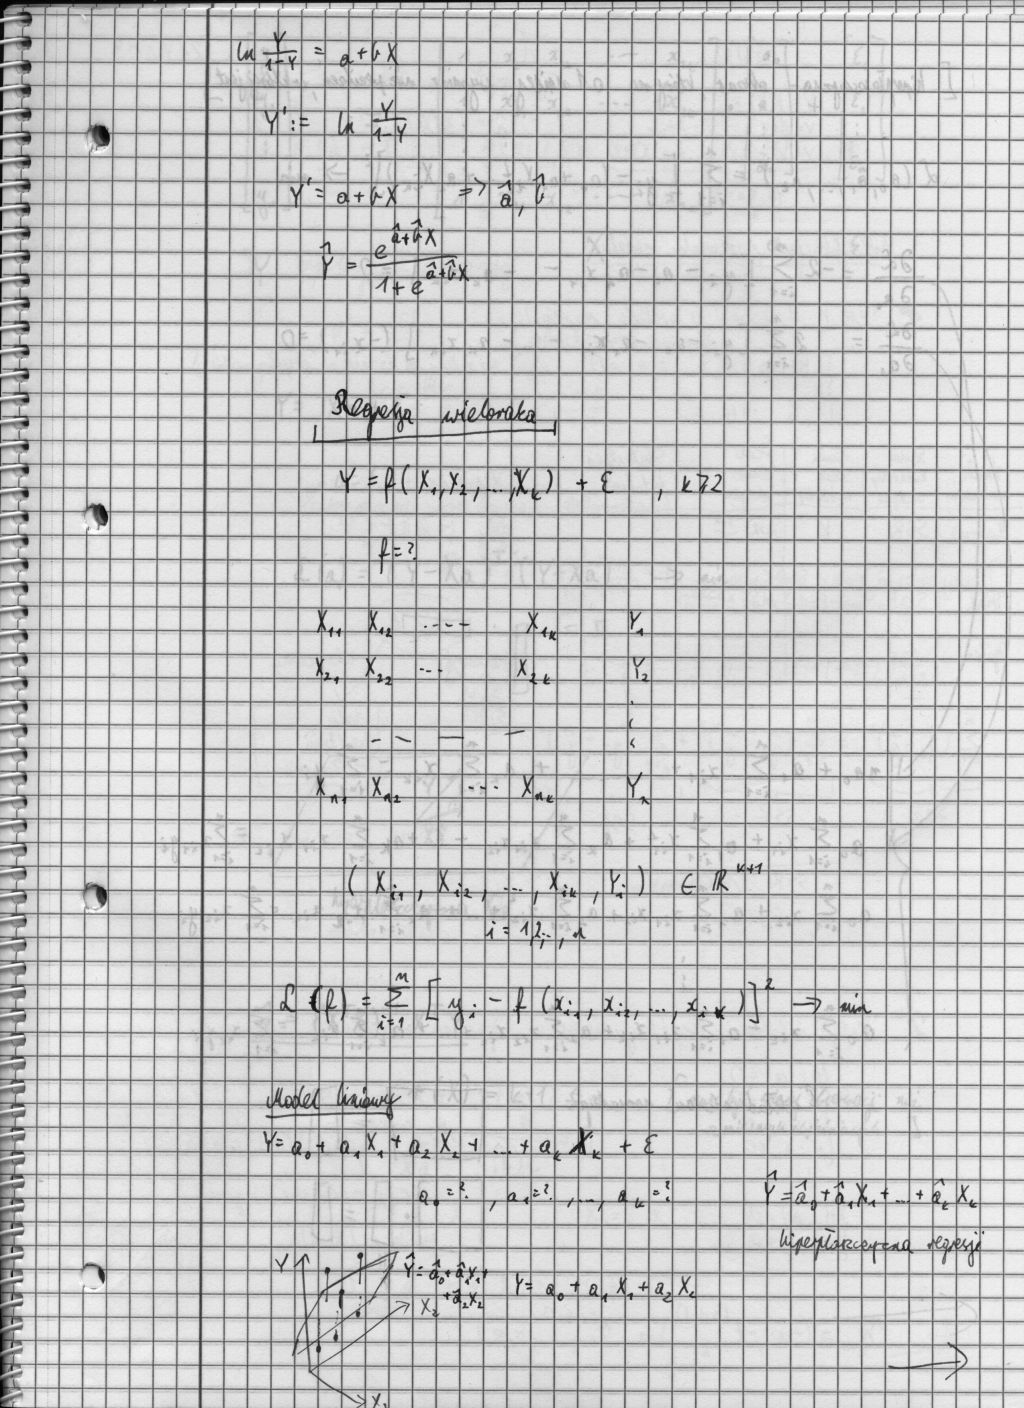 ln Y/(1-Y) = a+bX
Y' := ln Y/(1-Y)
Y' = a+bX => â, b̂
Ŷ = e^(â+b̂X) / (1+e^(â+b̂X))
Regresja wieloraka
Y = f(X₁, X₂, ..., Xₖ) + ε , k≥2
f=?
X₁₁ X₁₂ ---- X₁ₖ Y₁
X₂₁ X₂₂ --- X₂ₖ Y₂
Xₙ₁ Xₙ₂ --- Xₙₖ Yₙ
(Xᵢ₁, Xᵢ₂, ..., Xᵢₖ, Yᵢ) ∈ ℝᵏ⁺¹
i = 1,2,..., n
L(f) = Σᵢ₌₁ⁿ [yᵢ - f(xᵢ₁, xᵢ₂, ..., xᵢₖ)]² → min
Model liniowy
Y = a₀ + a₁X₁ + a₂X₂ + ... + aₖXₖ + ε
a₀=? , a₁=? , ..., aₖ=?
Ŷ = â₀ + â₁X₁ + ... + âₖXₖ
hiperpłaszczyzna regresji
Y
Ŷ = â₀ + â₁X₁ +
+ â₂X₂
X₂
Y = a₀ + a₁X₁ + a₂X₂
X₁